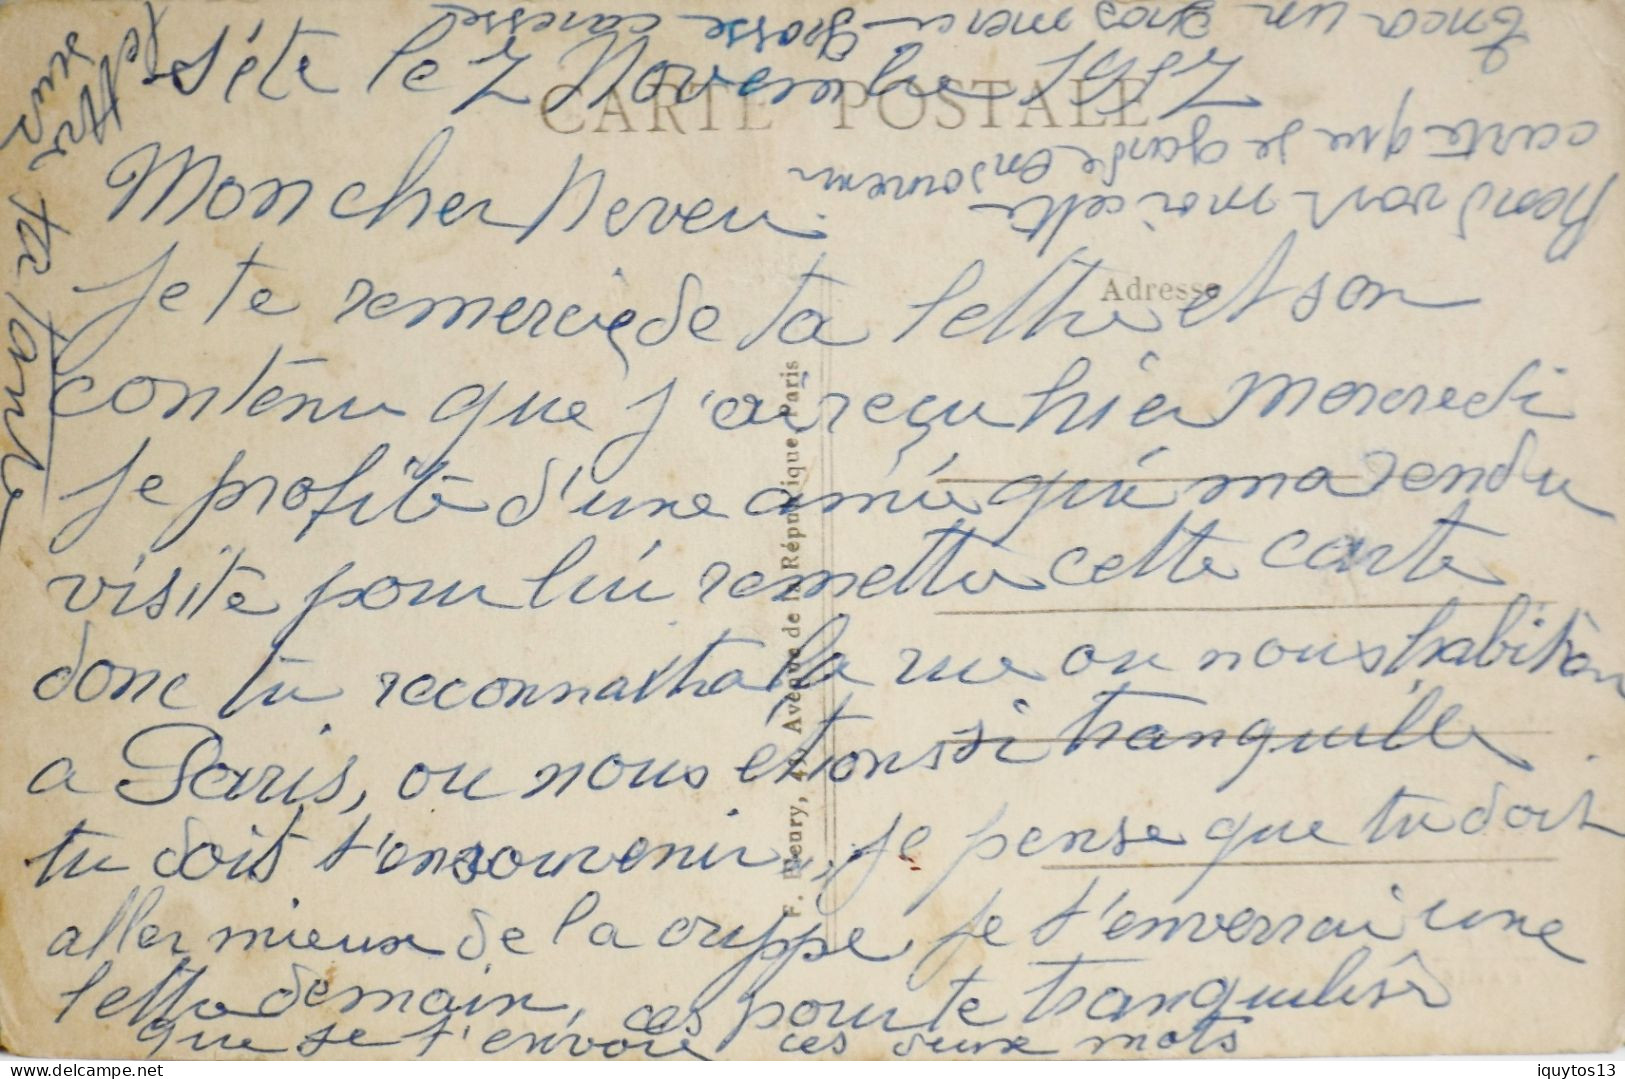 Sète le 7 Novembre 1957
CARTE POSTALE
Mon cher Neveu
Je te remercie de ta lettre et son
Adresse
contenu que j'ai reçu hier Mercredi
Je profite d'une amie qui ma rendu
visite pour lui remettre cette carte
donc tu reconnaitra la rue ou nous habition
a Paris, ou nous etions si tranquille
tu doit t'ensouvenir, je pense que tu doit
aller mieux de la grippe je t'enverrai une
lettre demain, ces pour te tranquilisé
que je t'envoie ces deux mots
Rend voir moi cette
carte que je garde en souvenir
Encor un gros merci grosse caresse
ta Tante
F. Fleury, Avenue de la République Paris
delcampe.net
iquytos13